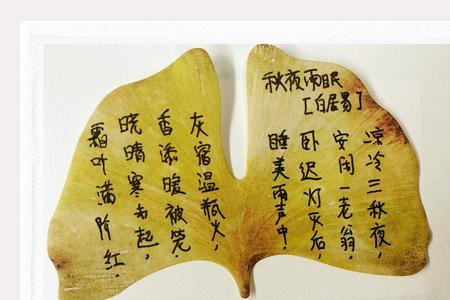 秋夜雨眠
[白居易]
凉冷三秋夜,
安闲一老翁,
卧迟灯灭后,
睡美雨声中.
灰宿温瓶火,
香添暖被笼.
晓晴寒未起,
霜叶满阶红.